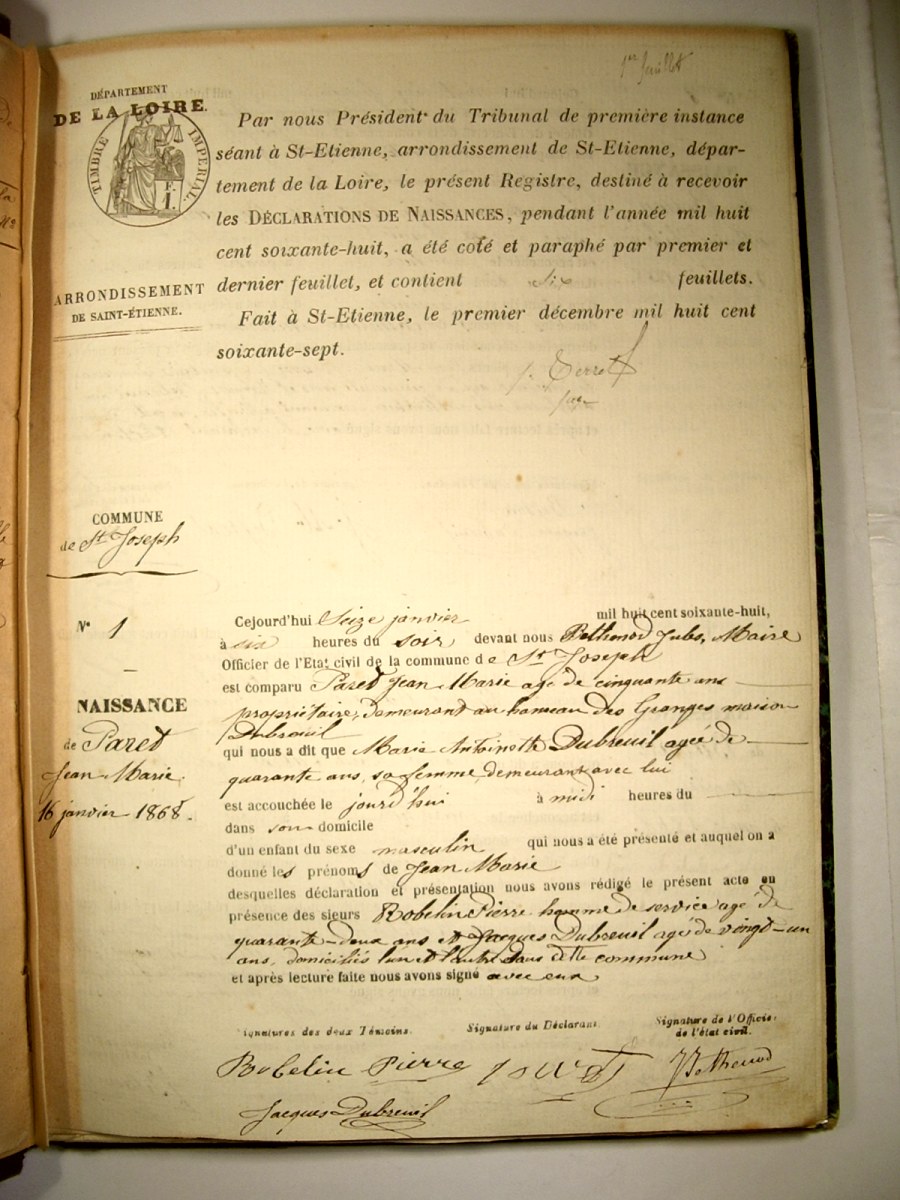 1er feuillet
DÉPARTEMENT
DE LA LOIRE.
TIMBRE IMPÉRIAL
F.
1.
ARRONDISSEMENT
DE SAINT-ÉTIENNE.
Par nous Président du Tribunal de première instance
séant à St-Etienne, arrondissement de St-Etienne, dépar-
tement de la Loire, le présent Registre, destiné à recevoir
les DÉCLARATIONS DE NAISSANCES, pendant l'année mil huit
cent soixante-huit, a été coté et paraphé par premier et
dernier feuillet, et contient six feuillets.
Fait à St-Etienne, le premier décembre mil huit cent
soixante-sept.
COMMUNE
de St Joseph
N° 1
NAISSANCE
de Paret
Jean Marie
16 janvier 1868.
Cejourd'hui Seize janvier mil huit cent soixante-huit,
à six heures du soir devant nous Bethenod Jules, Maire
Officier de l'Etat civil de la commune de St Joseph
est comparu Paret Jean Marie agé de cinquante ans
propriétaire, demeurant au hameau des Granges maison
Dubreuil
qui nous a dit que Marie Antoinette Dubreuil agée de
quarante ans, sa femme demeurant avec lui
est accouchée le jourd'hui à midi heures du
dans son domicile
d'un enfant du sexe masculin qui nous a été présenté et auquel on a
donné les prénoms de Jean Marie
desquelles déclaration et présentation nous avons rédigé le présent acte en
présence des sieurs Robelin Pierre homme de service agé de
quarante-deux ans et Jacques Dubreuil agé de vingt-un
ans, domiciliés l'un et l'autre dans cette commune
et après lecture faite nous avons signé avec eux
Signatures des deux Témoins. Signature du Déclarant. Signature de l'Officier
de l'état civil.
Robelin Pierre JBethenod
Jacques Dubreuil